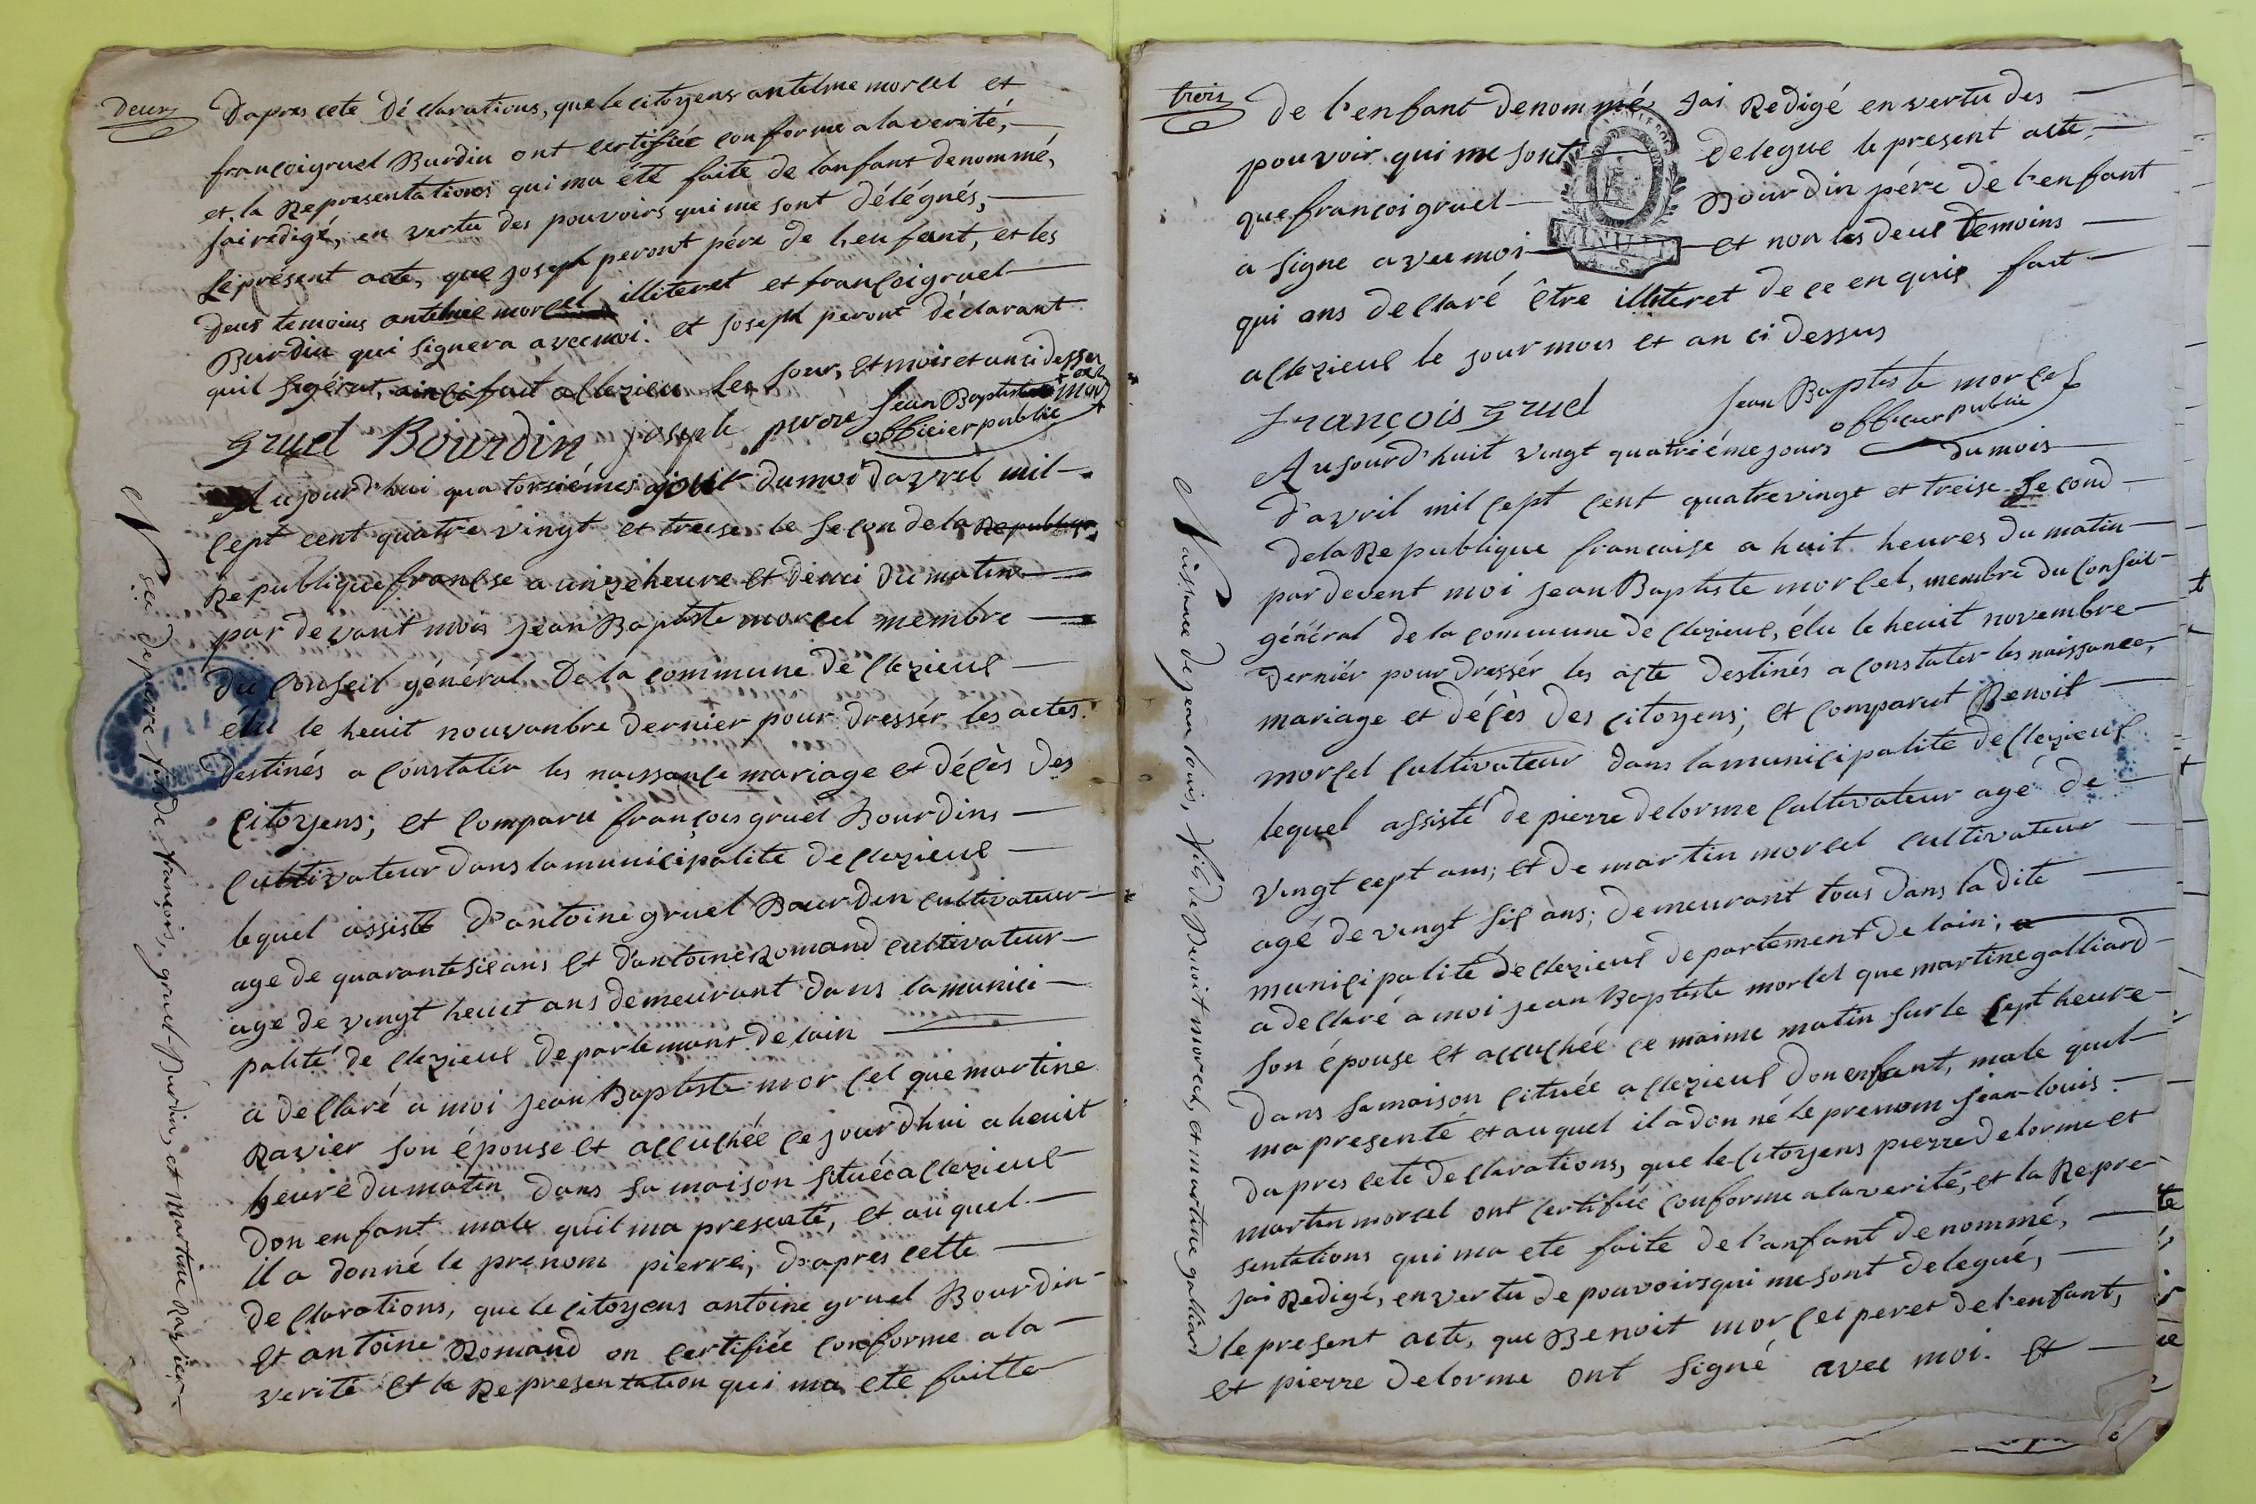 deux
D'apres cete Déclarations, que le citoyens antelme morcel et
françoi gruel Burdin ont certifiée conforme a la verité,
et la Representations qui ma été faite de lanfant denommé,
jai rédigé, en vertu des pouvoirs qui me sont délégnés,
le présent acte, que joseph peront pére de lenfant, et les
deus temoins antelme morcel illiteret et françoi gruel
Burdin qui signera avec moi. et joseph peront déclarant
quil fait a Clezieu les jour, et mois et an ci dessu
Gruel Bourdin joseph Jean Baptiste
officier public
Aujourd'hui quatorziémes jour du moi d'avrel mil
cept cent quatre vingt et treise le second de la Republiqe
Republique françse a unze heure et demi du matin
par devant mois jean Baptiste morcel membre
du conseil général de la commune de Clezieul
élu le heuit nouvanbre dernier pour dressér les actes
destinés a constatér les naissance mariage et décès des
citoyens; et comparu françois gruel Bourdins
cultivateur dans la municipalite de Clezieul
lequel assisté d'antoine gruel Bourdin cultivateur
age de quarante sis ans et d'antoine Romand cultivateur
age de vingt heuit ans demeurant dans la munici
palité de Clezieul departemant de lain
a declaré a moi jean Baptiste morcel que martine
Ravier son épouse et accuchée ce jourdhui a heuit
heure du matin dans sa maison située a Clezieul
don enfant male qu'il ma presenté, et au quel
il a donné le prenom pierre, d'apres cette
declarations, que le citoyens antoine gruel Bourdin
et antoine Romand on certifiée conforme a la
verité et la Representation qui ma ete faitte
de pierre fils de françois, gruel-Burdin, et Martine Ravier
trois
de l'enfant denommé, jai Redigé en vertu des
pouvoir qui me sont delegue le present acte,
que françoi gruel Bourdin pére de l'enfant
a signe avec moi et non les deus temoins
qui ans declaré être illiteret de ce enquis fait
a Clezieul le jour mois et an ci dessus
François Gruel Jean Baptiste morcel
officier public
MINUTE
Aujourd'huit vingt quatriéme jours du mois
d'avril mil cept cent quatrevingt et treise second
de la Republique francaise a huit heures du matin
par devent moi jean Baptiste morcel, membre du conseil
général de la commune de Clezieul, élu le heuit novembre
derniér pour dressér les acte destinés a constater les naissance,
mariage et décès des citoyens; et comparut Benoit
morcel cultivateur dans la municipalite de Clezieul
lequel assisté de pierre delorme cultivateur agé de
vingt cept ans; et de martin morcel cultivateur
agé de vingt sis ans; demeurant tous dans la dite
municipalité de Clezieul departement de lain;
a declaré a moi jean Baptiste morcel que martine galliard
son épouse et accuchée ce maime matin sur le cept heure
dans sa maison cituée a Clezieul don enfant, male quil
ma presenté et auquel il a donné le prenom jean-louis.
dapres cete declarations, que le citoyens pierre delorme et
martin morcel ont certifiée conforme a la verité, et la Repre
sentations qui ma ete faite de l'anfant denommé,
jai Redigé, en vertu de pouvoirs qui me sont delegué,
le present acte, que Benoit morcel peret de l'enfant,
et pierre delorme ont signé avec moi. et
Naissance de jean louis, fils de Benoit morcel, et martine galliard